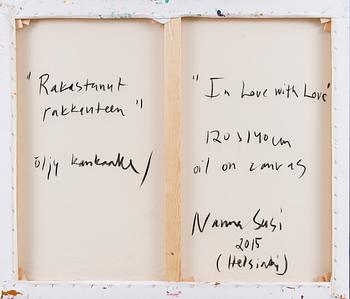 "Rakastunut
rakkauteen"
öljy kankaalle
"In Love with Love"
120x140cm
oil on canvas
Nanna Susi
2015
(Helsinki)